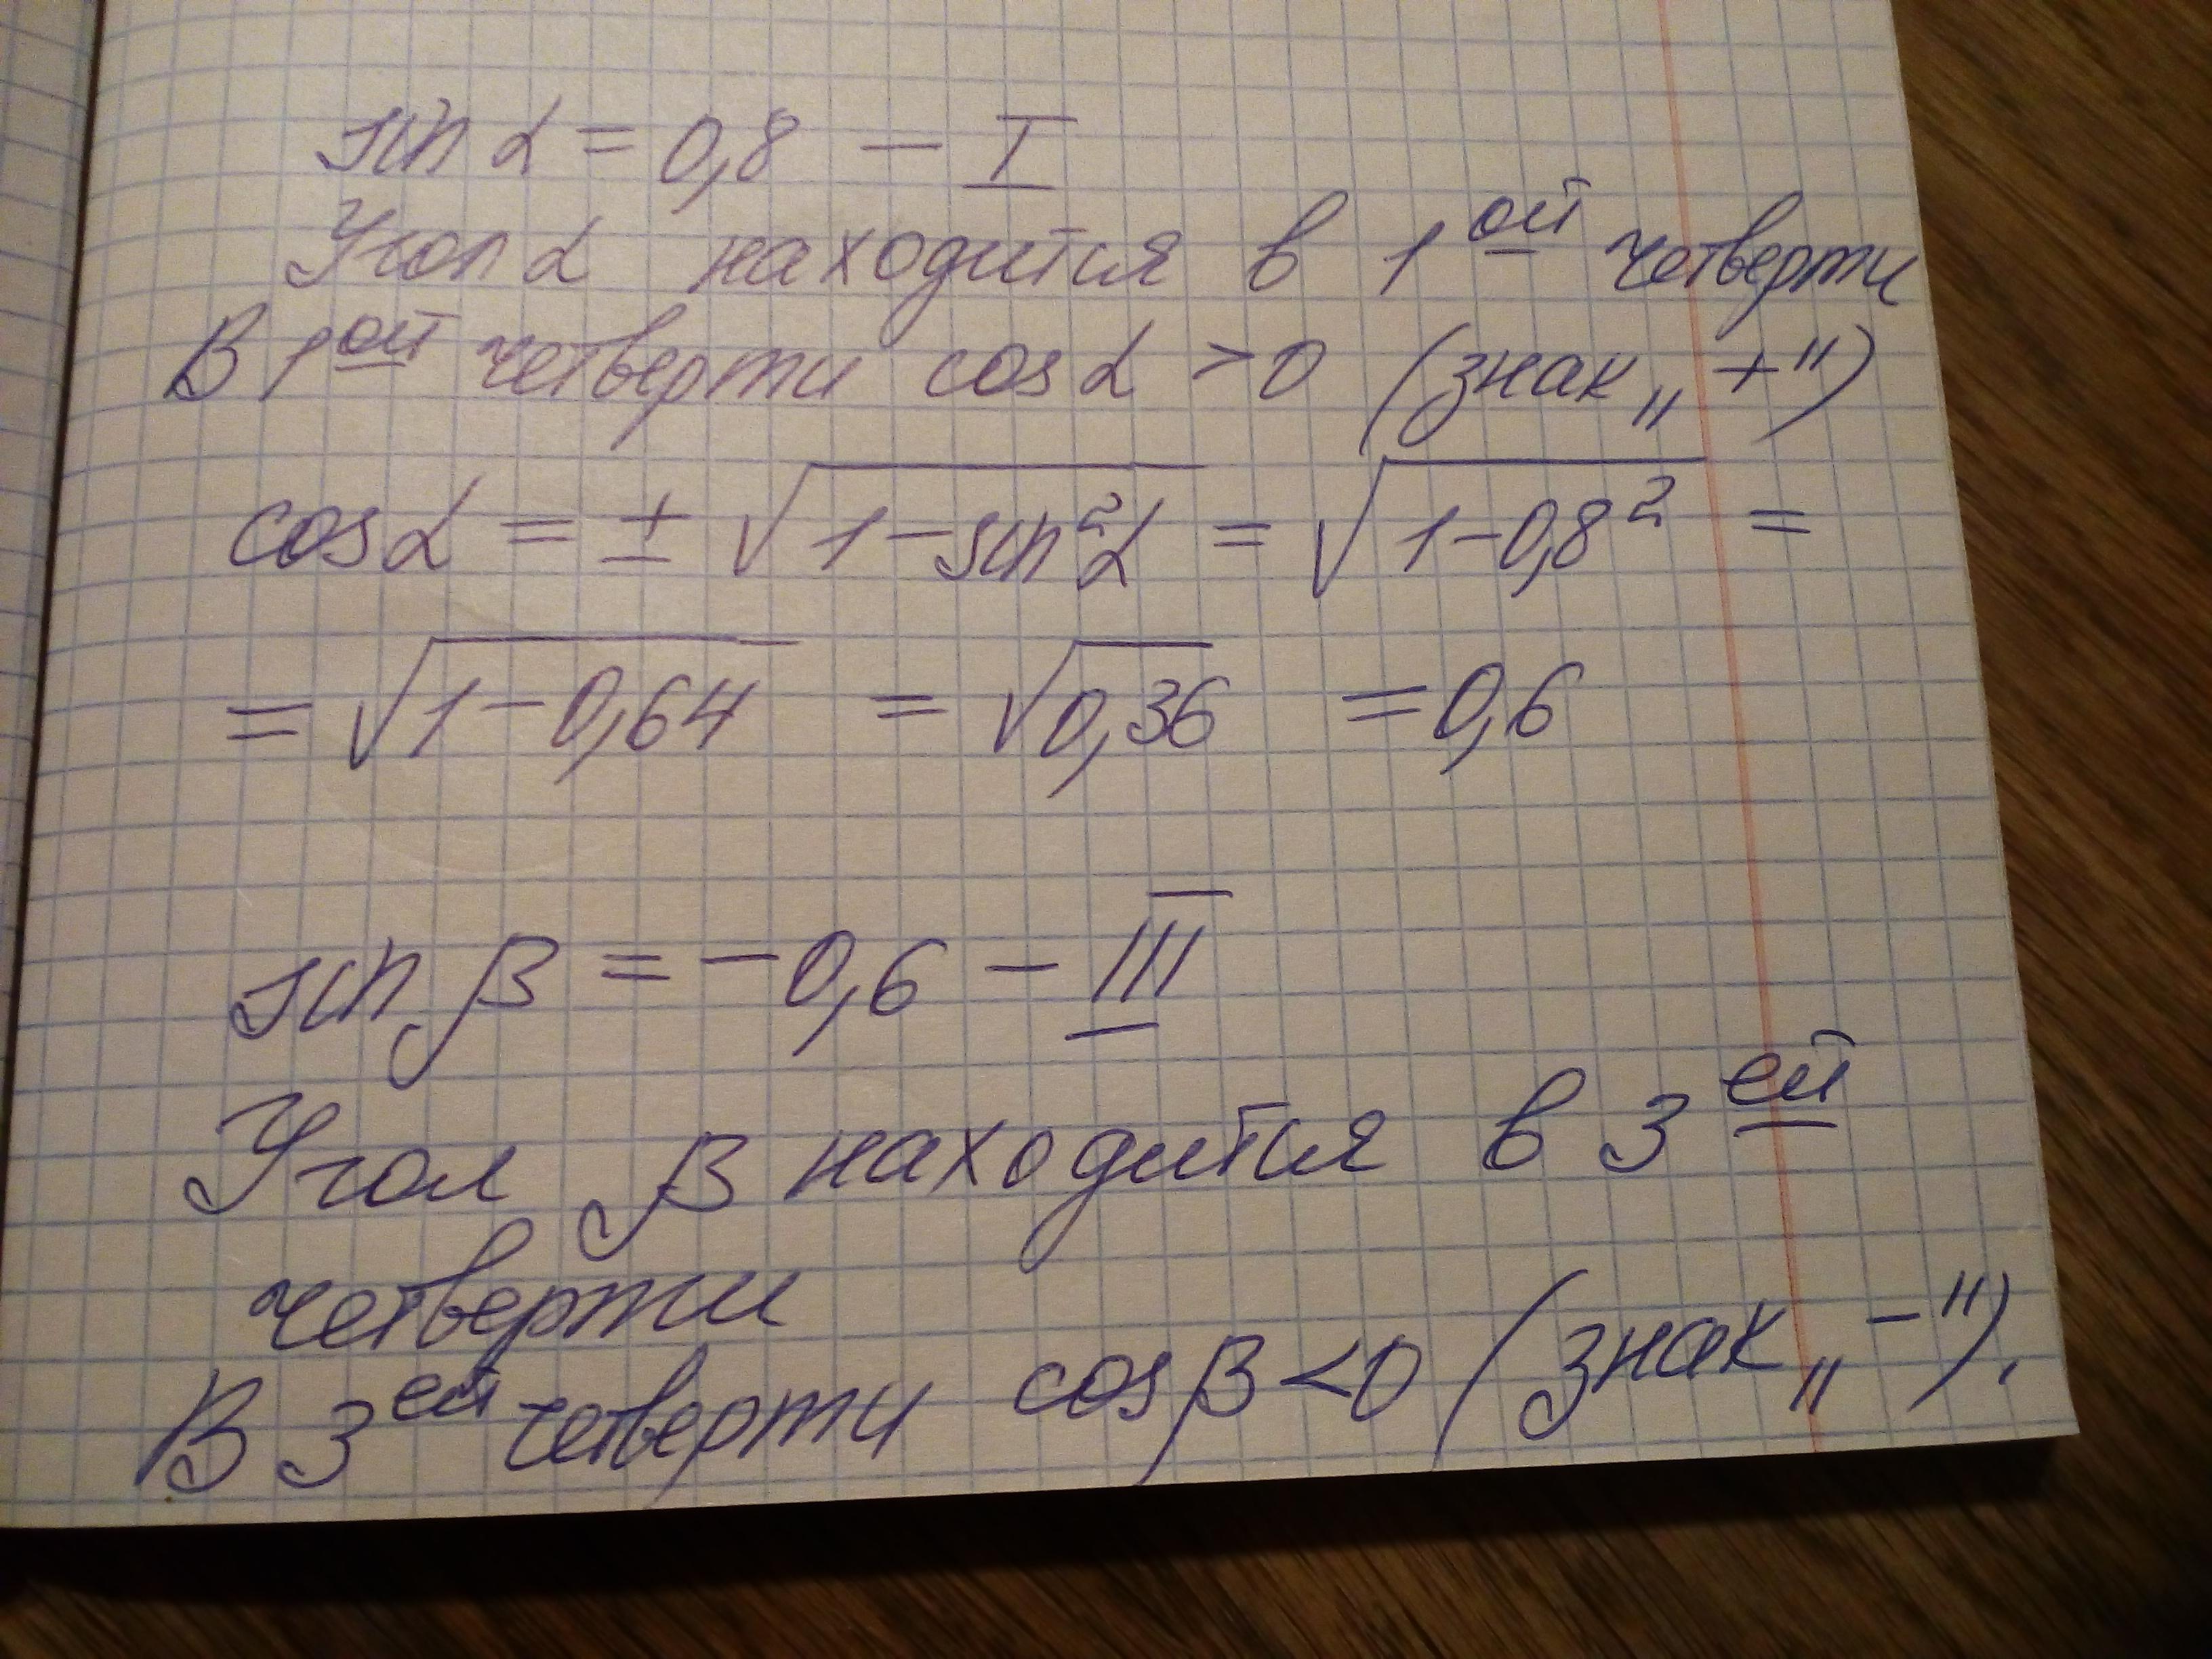 sin α = 0,8 – I
Угол α находится в 1ой четверти
В 1ой четверти cos α > 0 (знак „+")
cos α = ± √1 – sin² α = √1 – 0,8² =
= √1 – 0,64 = √0,36 = 0,6
sin β = –0,6 – III
Угол β находится в 3ей
четверти
В 3ей четверти cos β < 0 (знак „–").